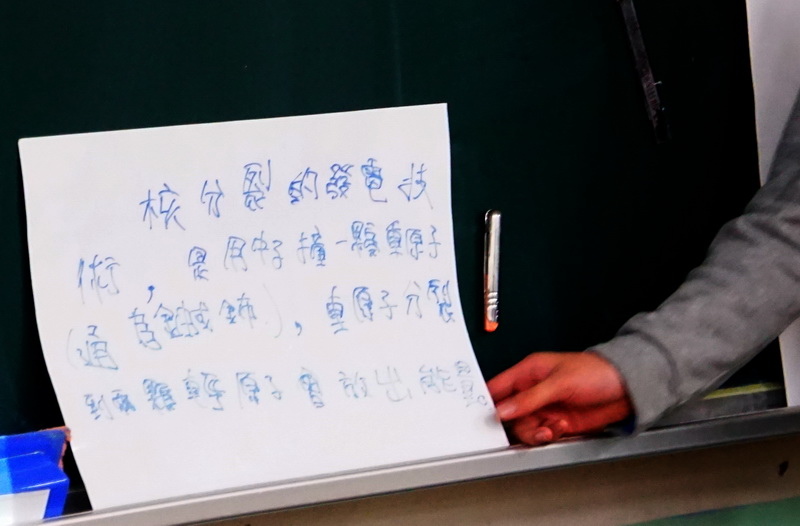 核分裂的發電技
術,是用中子撞一顆重原子
(通常鈾或鈽),重原子分裂
到兩顆輕原子會放出能量。